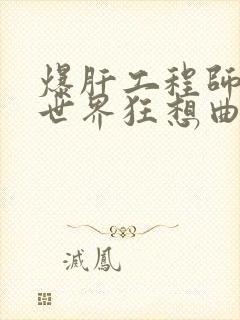 爆肝工程師
世界狂想曲,
滅鳳